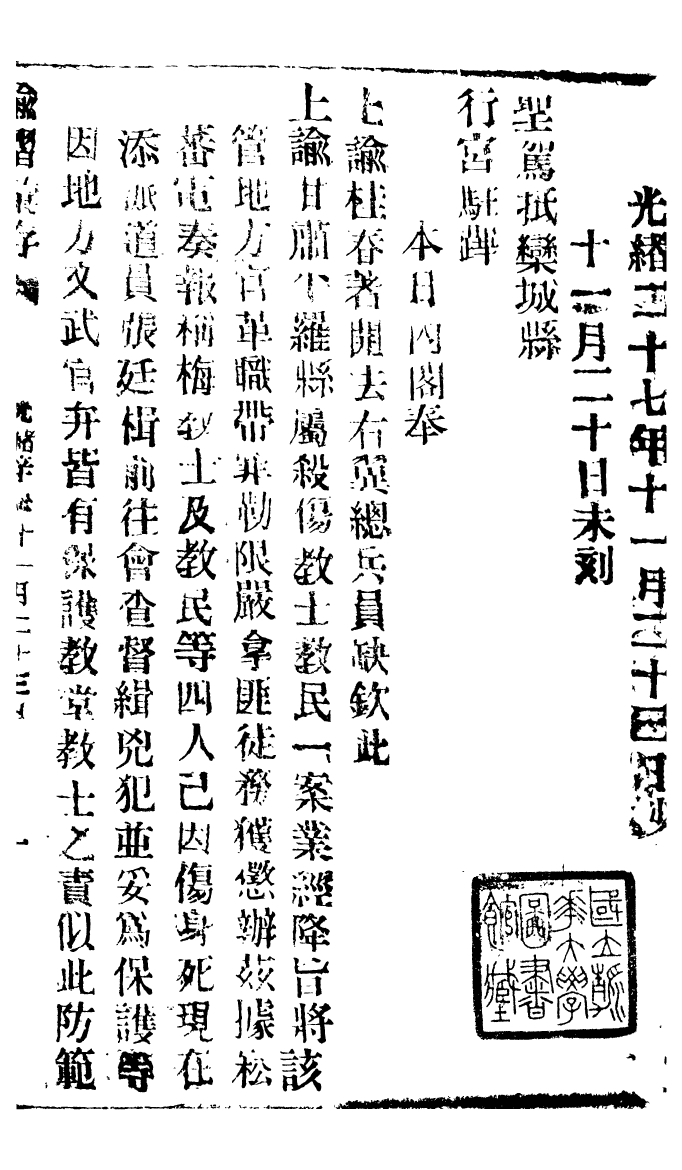 光緒二十七年十一月二十四日鈔
十一月二十日未刻
聖駕抵欒城縣
行宮駐蹕
本日內閣奉
上諭桂春著開去右翼總兵員缺欽此
上諭甘肅平羅縣屬殺傷教士教民一案業經降旨將該
管地方官革職帶罪勒限嚴拿匪徒務獲懲辦茲據松
蕃電奏報稱梅教士及教民等四人已因傷身死現在
添派道員張廷楫前往會查督緝兇犯並妥為保護等
因地方文武官弁皆有保護教堂教士之責似此防範
諭摺彙存 光緒辛丑十一月二十三日 一
國立清華大學圖書館藏